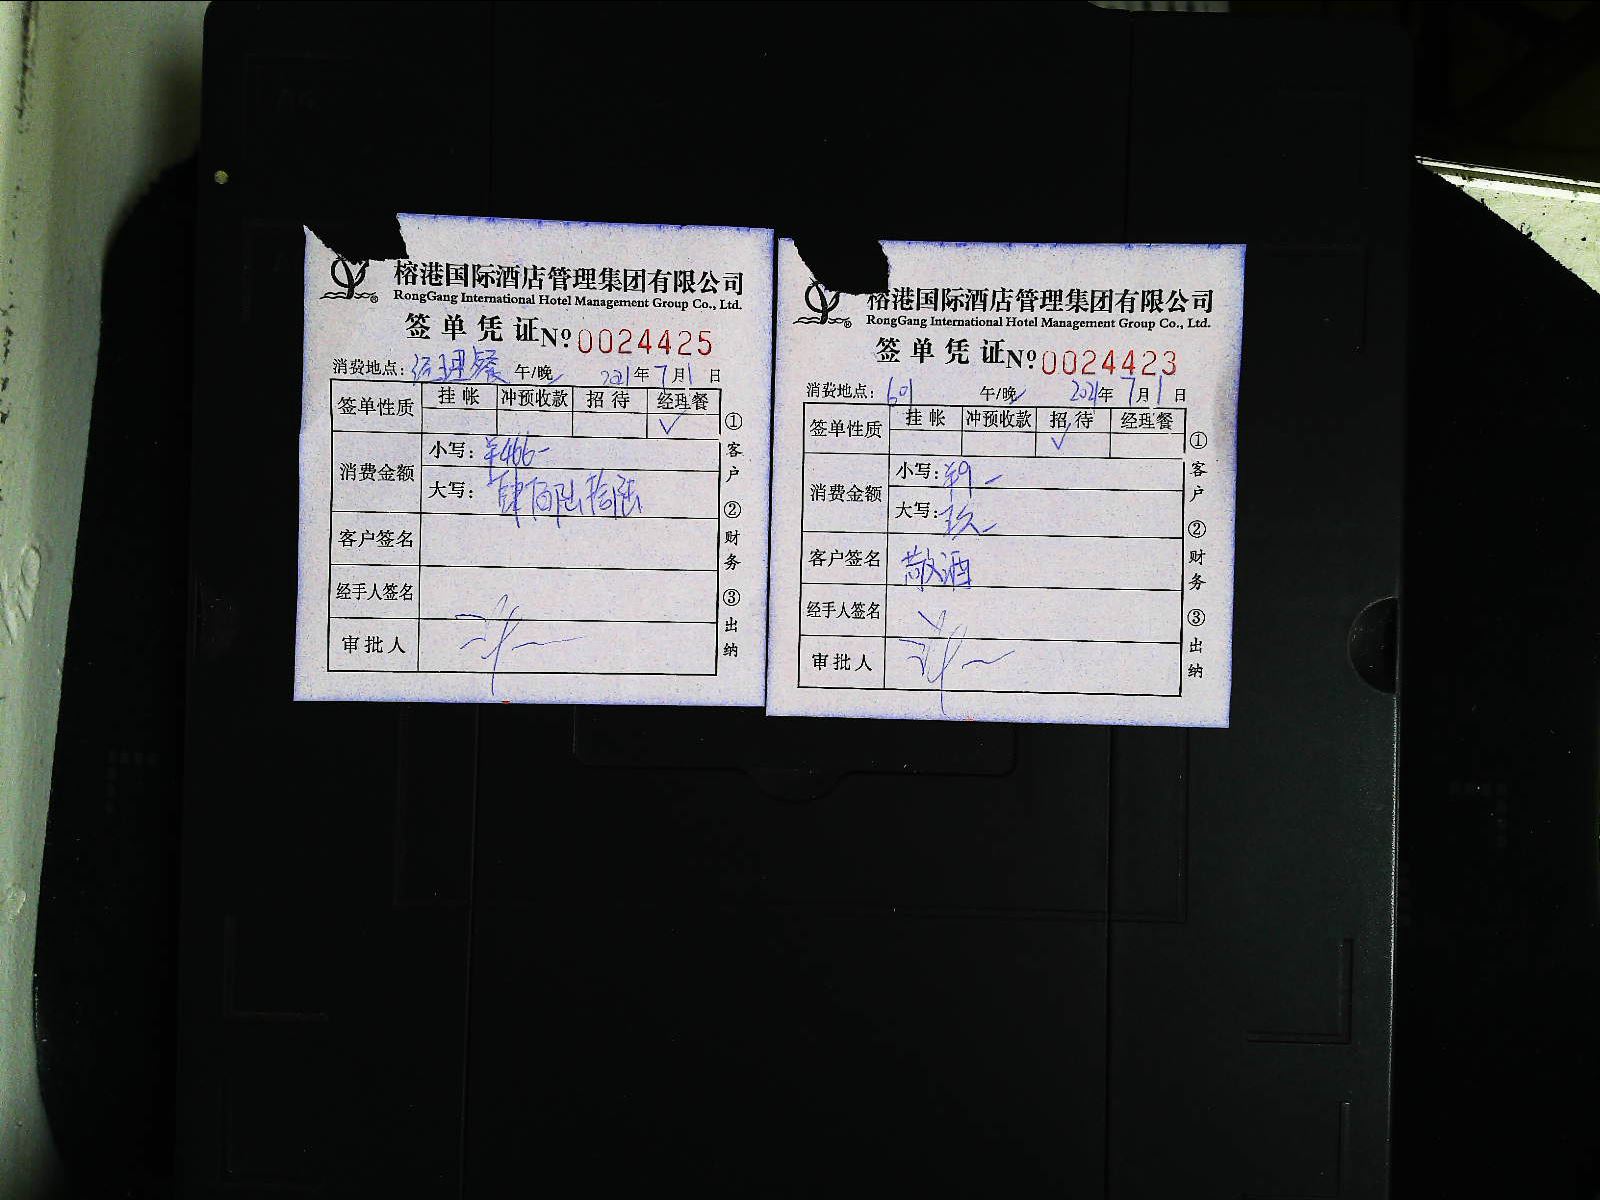 榕港国际酒店管理集团有限公司
RongGang International Hotel Management Group Co., Ltd.
签单凭证 Nº 0024425
消费地点：经理餐 午/晚 2021年7月1日
签单性质 挂帐 冲预收款 招待 经理餐
✓
消费金额
小写：¥466-
大写：肆佰陆拾陆
客户签名
经手人签名
审批人
①客户 ②财务 ③出纳
榕港国际酒店管理集团有限公司
RongGang International Hotel Management Group Co., Ltd.
签单凭证 Nº 0024423
消费地点：601 午/晚 2021年7月1日
签单性质 挂帐 冲预收款 招待 经理餐
✓
消费金额
小写：¥9-
大写：玖
客户签名 敬酒
经手人签名
审批人
①客户 ②财务 ③出纳